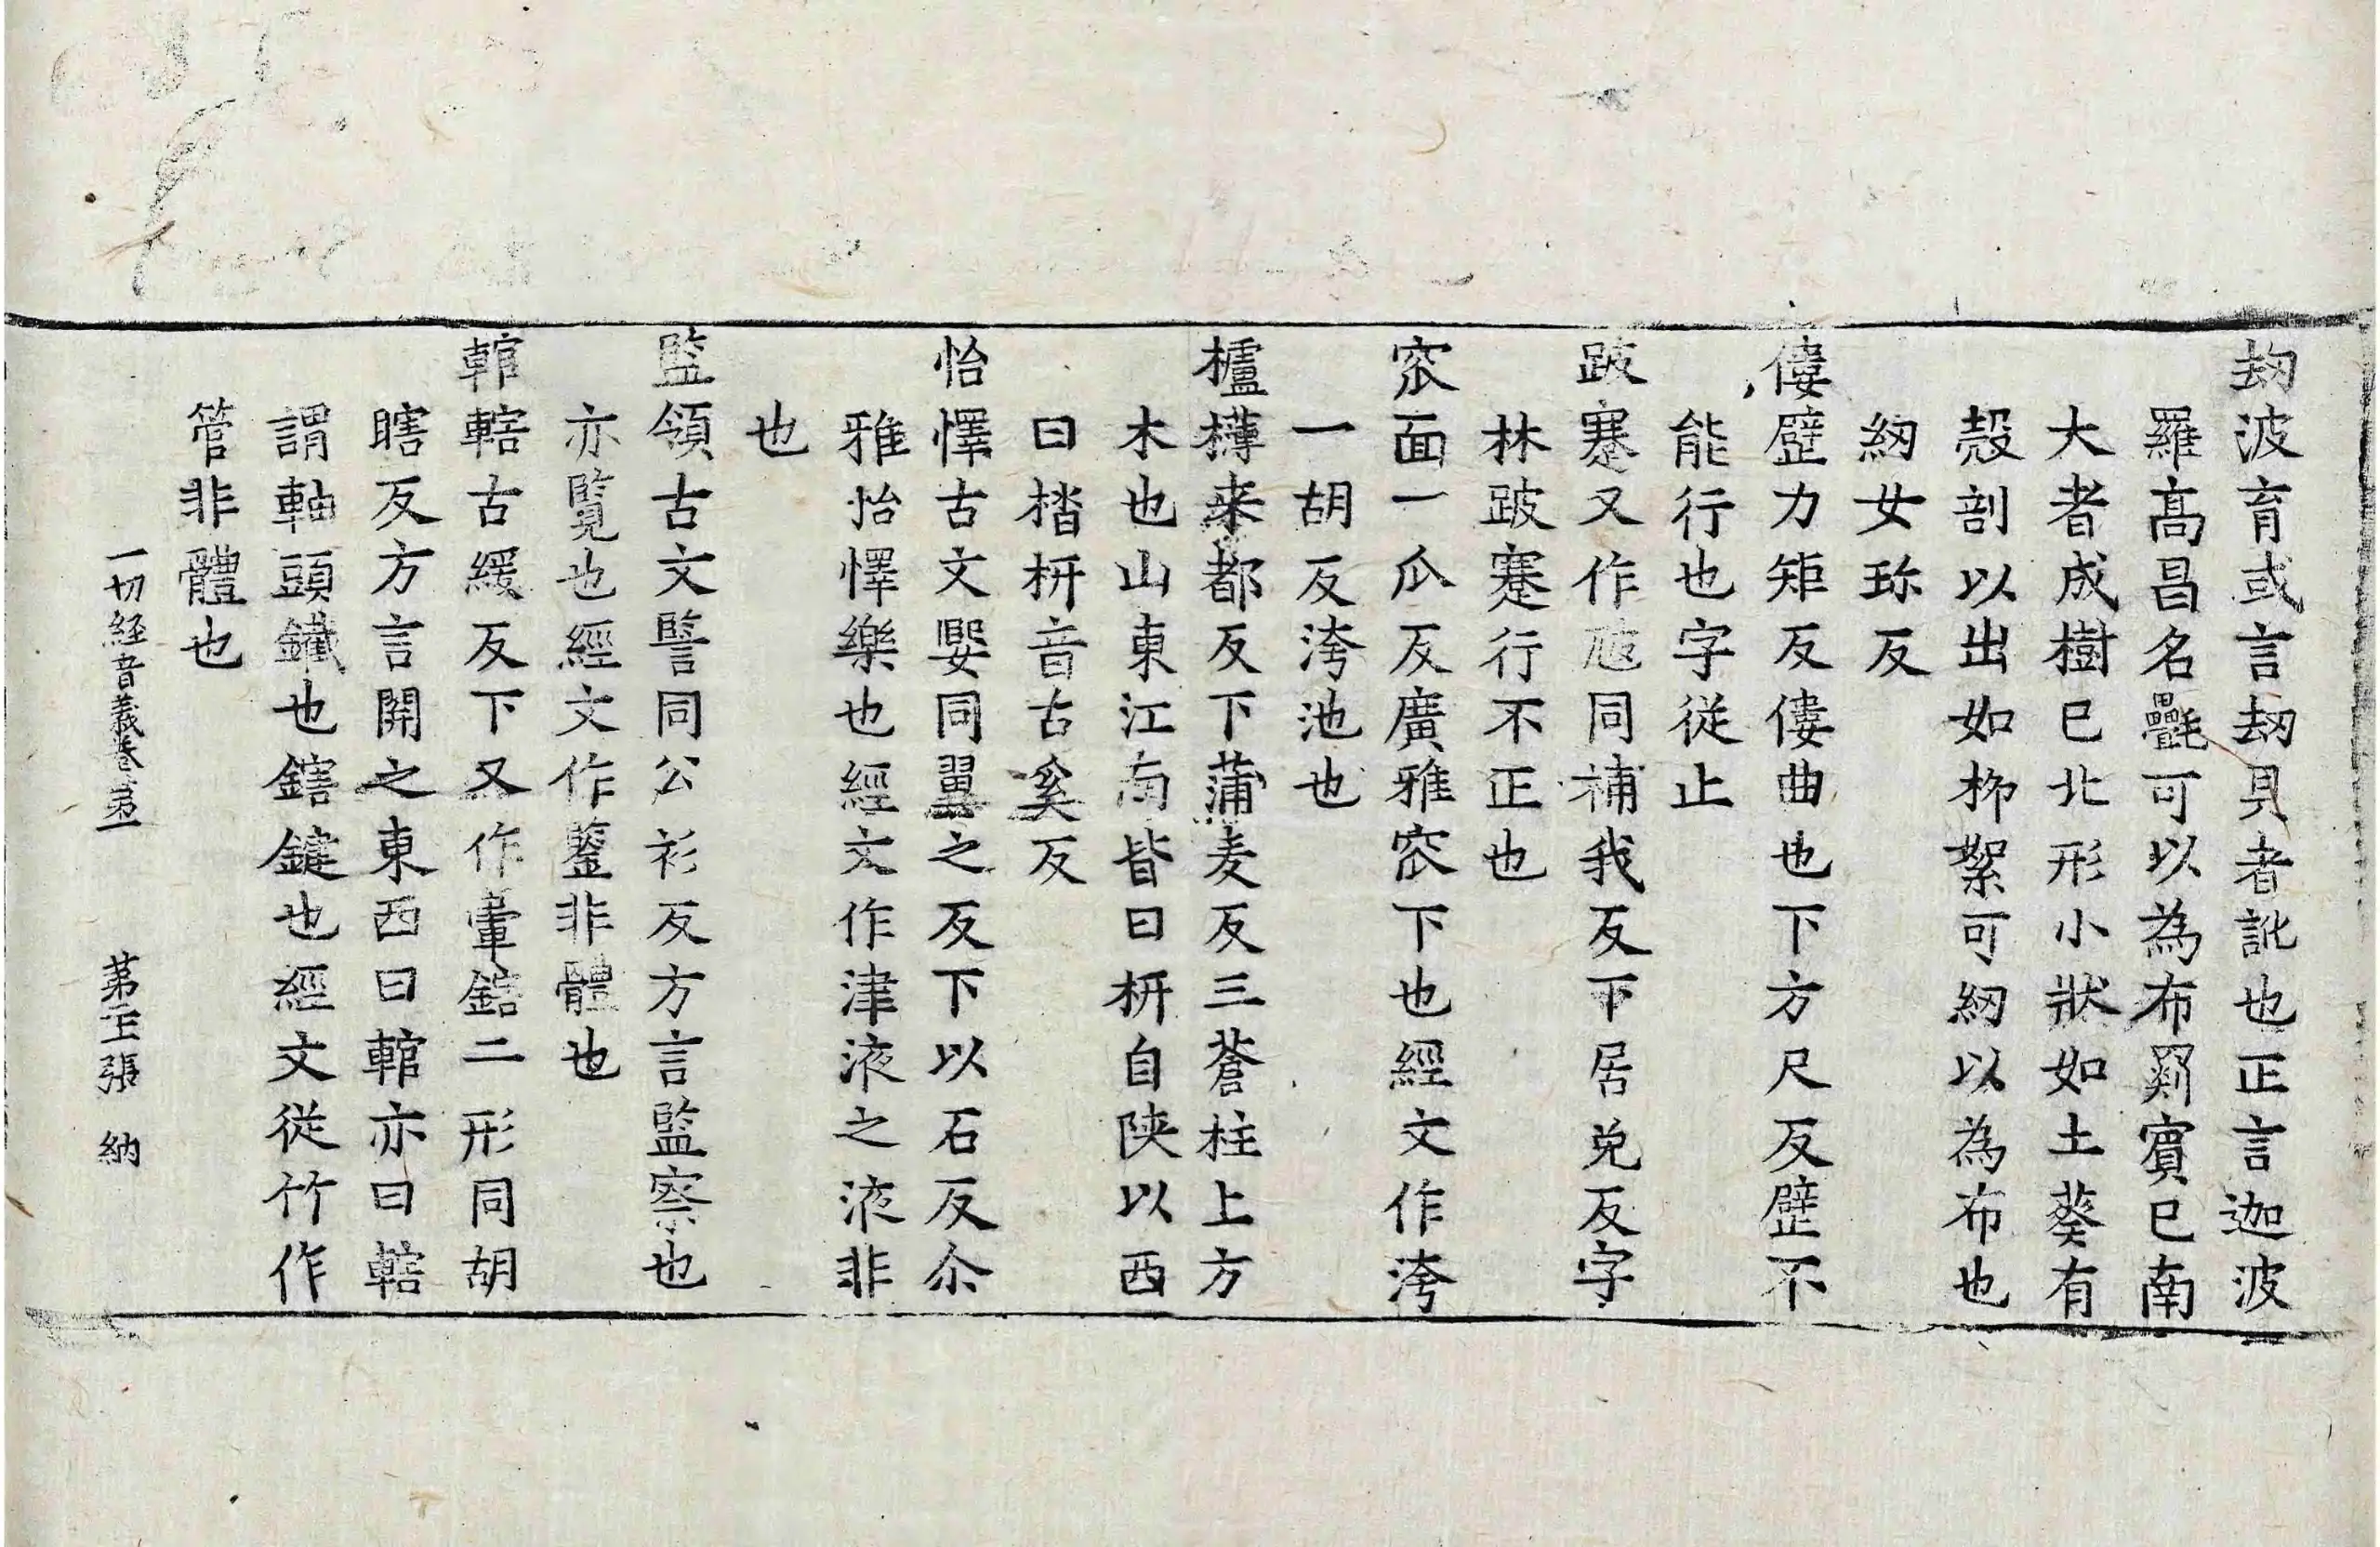 劫波育或言劫貝者訛也正言迦波
羅高昌名㲲可以為布罽賓已南
大者成樹已北形小狀如土葵有
殼剖以出如柳絮可紉以為布也
紉女珎反
僂躄力矩反僂曲也下方尺反躄不
能行也字従止
跛蹇又作㝿同補我反下居免反字
林跛蹇行不正也
窊面一瓜反廣雅窊下也經文作洿
一胡反洿池也
櫨欂来都反下蒲麦反三蒼柱上方
木也山東江南皆曰枅自陕以西
曰㭼枅音古奚反
怡懌古文嬰同翼之反下以石反尒
雅怡懌樂也經文作津液之液非
也
監領古文譥同公衫反方言監察也
亦覽也經文作鑒非體也
輨轄古緩反下又作轊鎋二形同胡
瞎反方言關之東西曰輨亦曰轄
謂軸頭鐵也鎋鍵也經文従竹作
管非體也
一切経音義巻苐一 苐二十五張 納